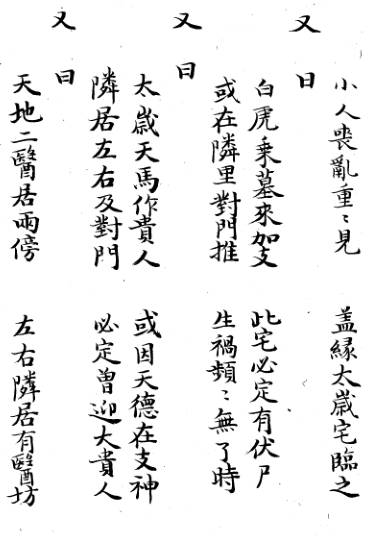 小人喪亂重〻見　盖縁太歲宅臨之
又曰
白虎乗墓來加支　此宅必定有伏尸
或在隣里對門推　生禍頻〻無了時
又曰
太歲天馬作貴人　或因天德在支神
隣居左右及對門　必定曽迎大貴人
又曰
天地二醫居兩傍　左右隣居有醫坊